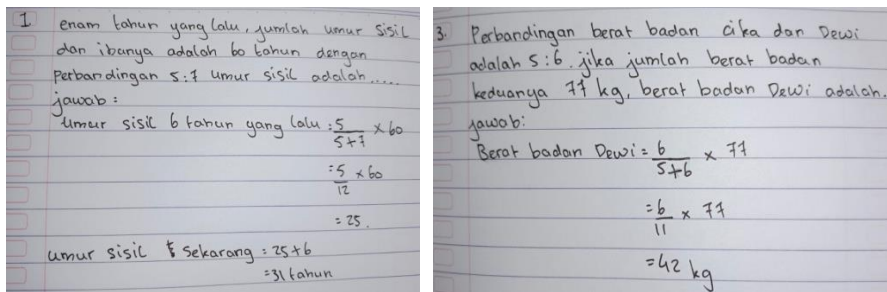 1 enam tahun yang lalu, jumlah umur sisil
dan ibunya adalah 60 tahun dengan
perbandingan 5:7 umur sisil adalah.....
jawab :
Umur sisil 6 tahun yang lalu : 5/5+7 x 60
= 5/12 x 60
= 25.
umur sisil sekarang : 25+6
= 31 tahun
3. Perbandingan berat badan cika dan Dewi
adalah 5:6. jika jumlah berat badan
keduanya 77 kg, berat badan Dewi adalah.
jawab:
Berat badan Dewi = 6/5+6 x 77
= 6/11 x 77
= 42 kg